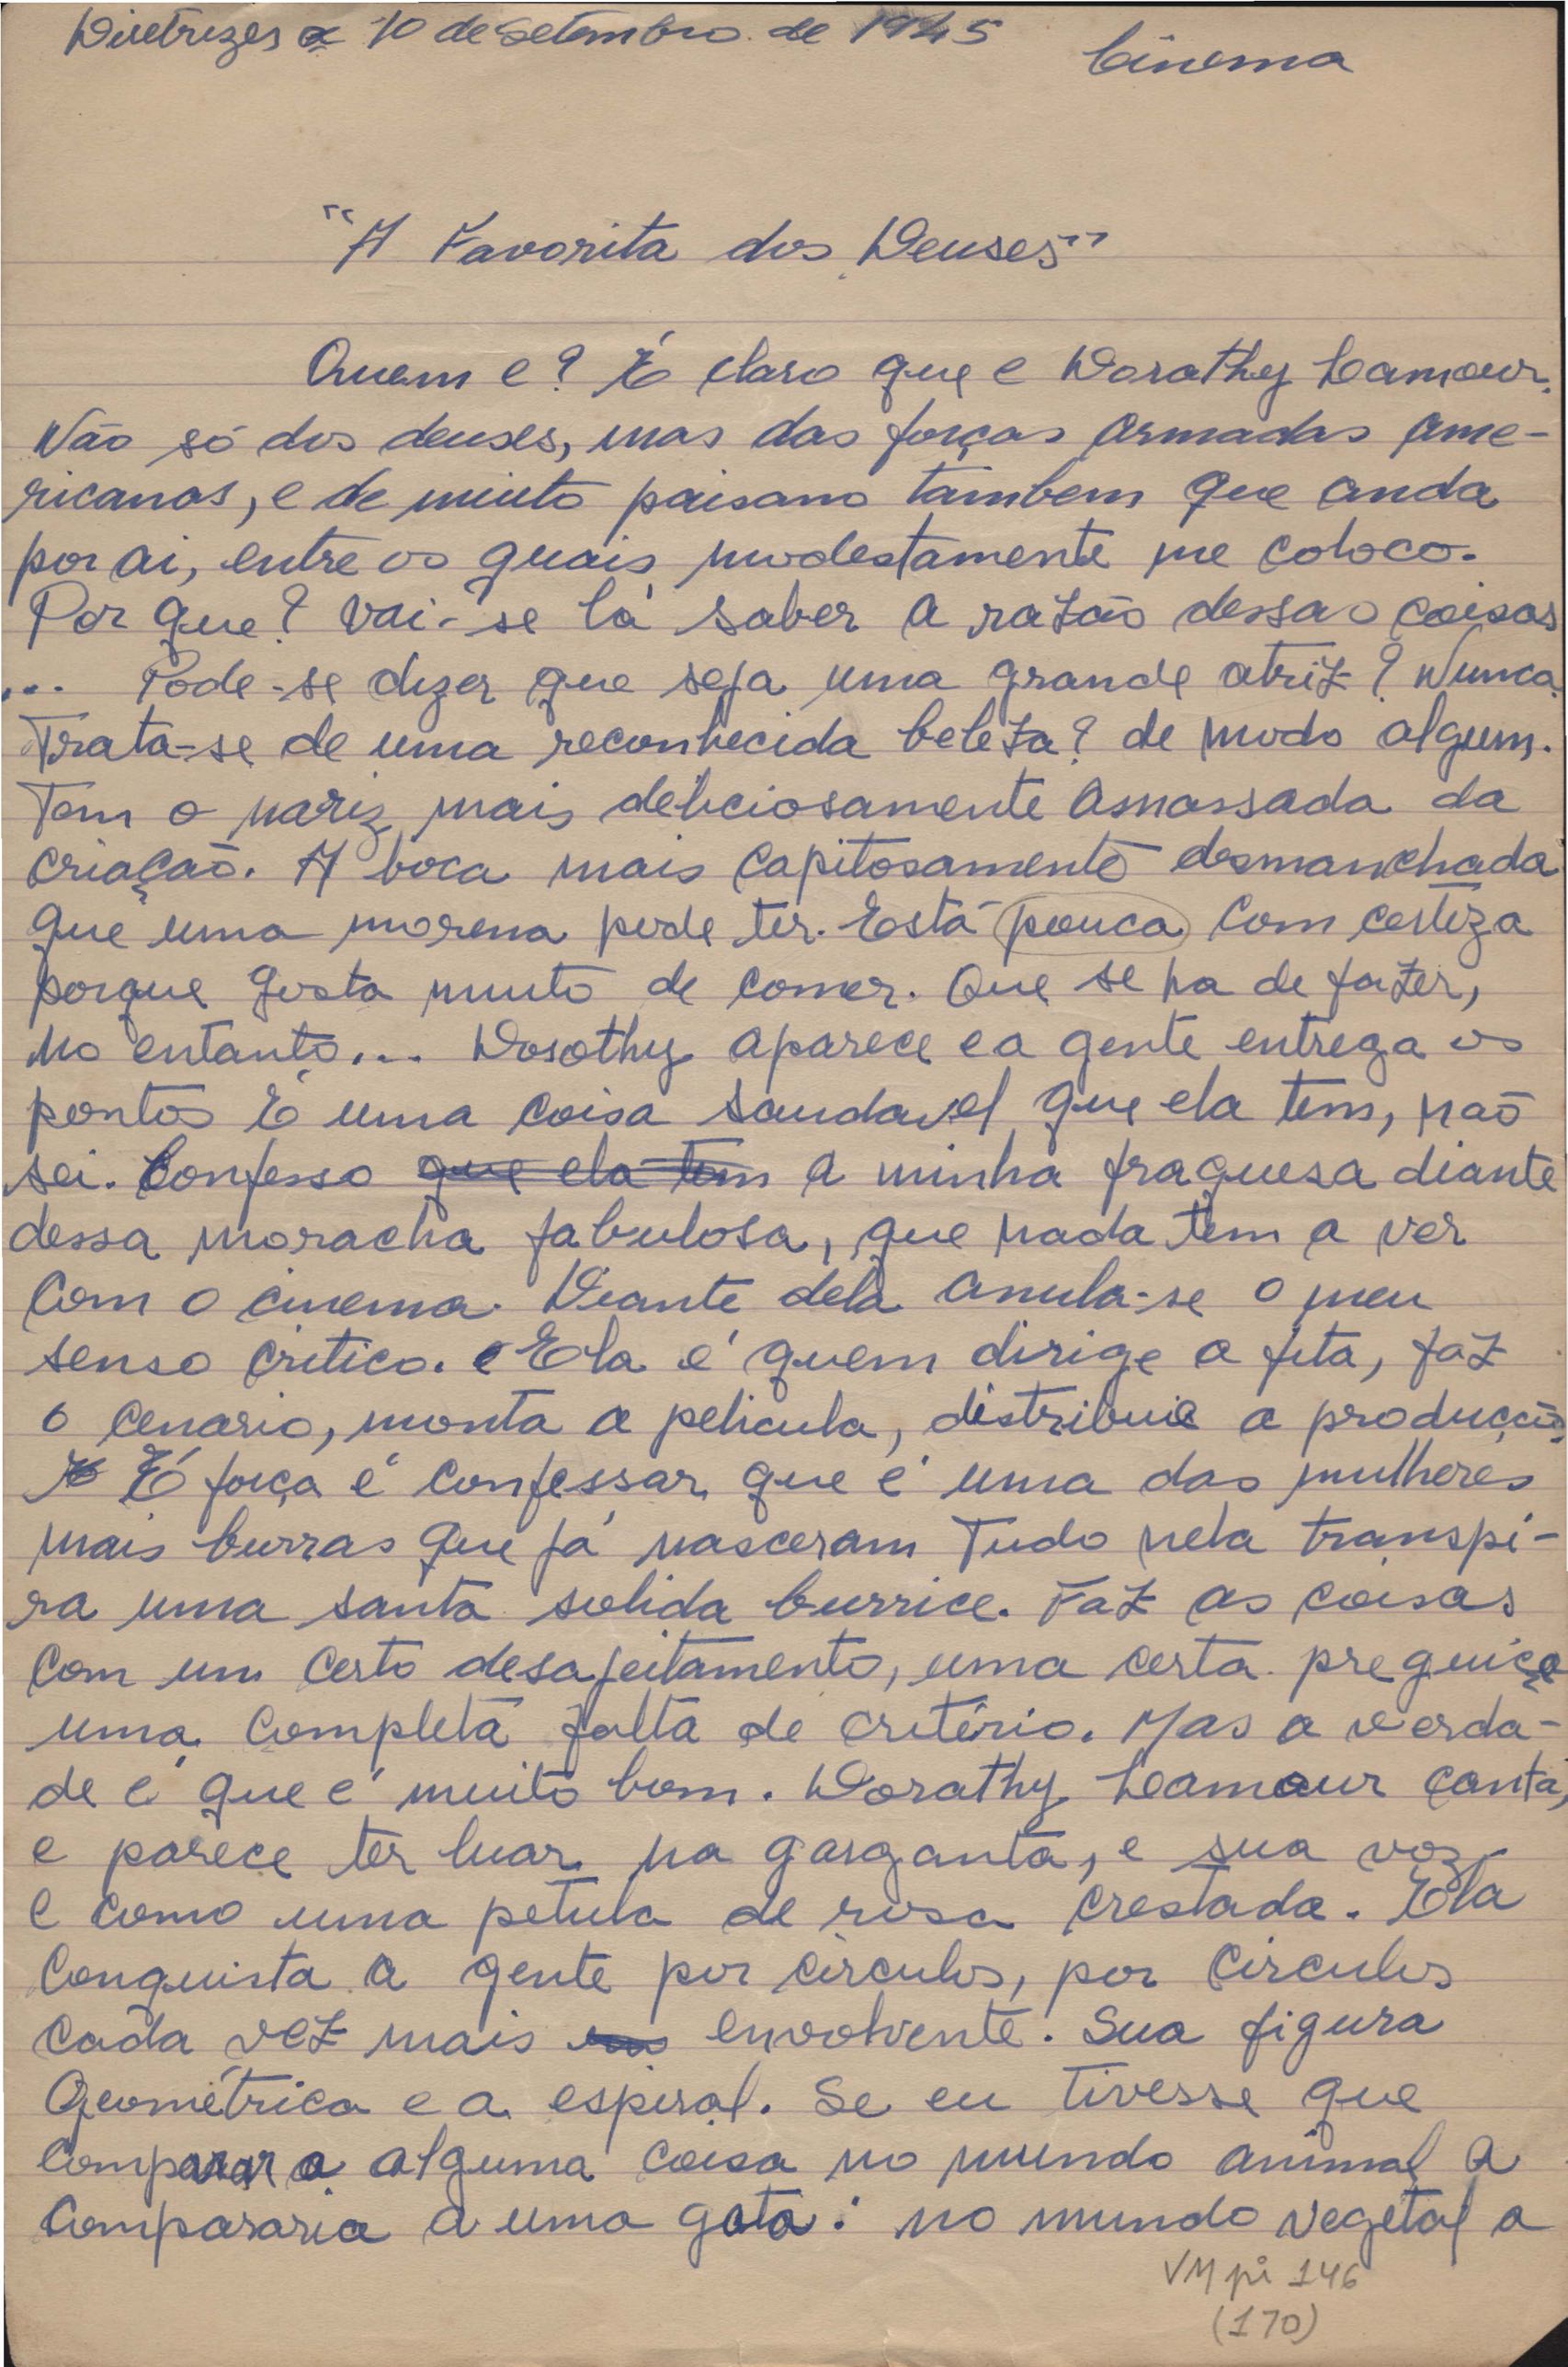 Diretrizes 10 de Setembro de 1945
Cinema
"A Favorita dos Deuses"
Quem e? É claro que e Dorathy Lamour.
Não só dos deuses, mas das forças armadas ame-
ricanas, e de muito paisano tambem que anda
por ai, entre os quais modestamente me coloco.
Por que? Vai-se lá saber a razão dessas coisas
... Pode-se dizer que seja uma grande atriz? Nunca.
Trata-se de uma reconhecida beleza? de modo algum.
Tem o nariz mais deliciosamente amassada da
criação. A boca mais capitosamente desmanchada
que uma morena pode ter. Está pouca com certeza
porque gosta muito de comer. Que se ha de fazer,
no entanto... Dorothy aparece e a gente entrega os
pontos É uma coisa saudavel que ela tem, não
sei. Confesso que ela tem a minha fraquesa diante
dessa moracha fabulosa, que nada tem a ver
com o cinema. Diante dela anula-se o meu
senso critico. Ela é quem dirige a fita, faz
o cenario, monta a pelicula, distribuie a producção.
É força é confessar que é uma das mulheres
mais burras que já nasceram Tudo nela transpi-
ra uma santa solida burrice. Faz as coisas
com um certo desajeitamento, uma certa preguiça
uma completa falta de critério. Mas a verda-
de é que é muito bom. Dorathy Lamour canta,
e parece ter luar na garganta, e sua voz
e como uma petula de rosa crestada. Ela
conquista a gente por circulos, por circulos
cada vez mais envolvente. Sua figura
Geométrica e a espiral. Se eu tivesse que
comparar a alguma coisa no mundo animal a
compararia a uma gata: no mundo vegetal a
VM pi 146
(170)